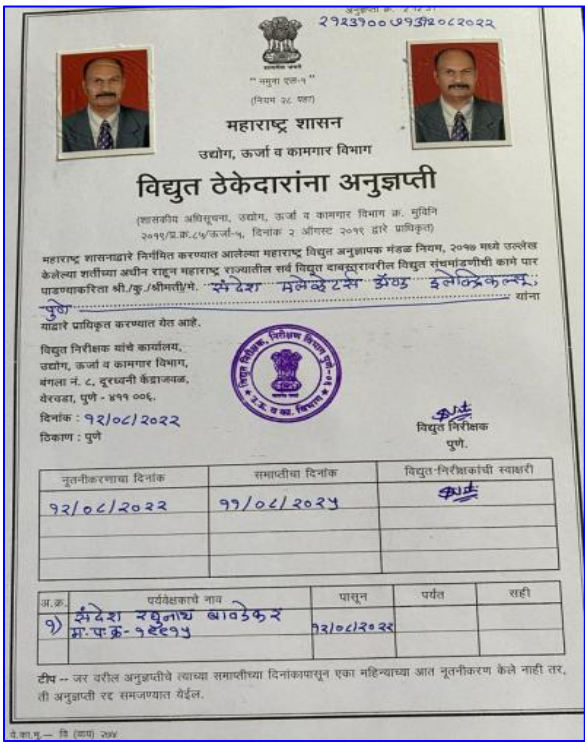 अनुज्ञप्ती क्र.
सत्यमेव जयते
" नमुना एल-१ "
(नियम २८ पहा)
महाराष्ट्र शासन
उद्योग, ऊर्जा व कामगार विभाग
विद्युत ठेकेदारांना अनुज्ञप्ती
(शासकीय अधिसूचना, उद्योग, ऊर्जा व कामगार विभाग क्र. मुविनि
२०१९/प्र.क्र.८५/ऊर्जा-५, दिनांक २ ऑगस्ट २०१९ द्वारे प्राधिकृत)
महाराष्ट्र शासनाद्वारे निर्गमित करण्यात आलेल्या महाराष्ट्र विद्युत अनुज्ञापक मंडळ नियम, २०१७ मध्ये उल्लेख
केलेल्या शर्तीच्या अधीन राहून महाराष्ट्र राज्यातील सर्व विद्युत दाबस्तरावरील विद्युत संचमांडणीची कामे पार
पाडण्याकरिता श्री./कु./श्रीमती/मे. संदेश एलेव्हेटर्स अँण्ड इलेक्ट्रिकल्स,
पुणे यांना
याद्वारे प्राधिकृत करण्यात येत आहे.
विद्युत निरीक्षक यांचे कार्यालय,
उद्योग, ऊर्जा व कामगार विभाग,
बंगला नं. ८, दूरध्वनी केंद्राजवळ,
येरवडा, पुणे - ४११ ००६.
दिनांक : १२/०८/२०२२
ठिकाण : पुणे
विद्युत निरीक्षक, निरीक्षण विभाग पुणे-
उ.ऊ. व का. विभाग
विद्युत निरीक्षक
पुणे.
नूतनीकरणाचा दिनांक समाप्तीचा दिनांक विद्युत-निरीक्षकांची स्वाक्षरी
१२/०८/२०२२ ११/०८/२०२५
अ.क्र. पर्यवेक्षकाचे नाव पासून पर्यंत सही
१) संदेश रघुनाथ बावडेकर १२/०८/२०२२
म.प.क्र-१९९१५
टीप -- जर वरील अनुज्ञप्तीचे त्याच्या समाप्तीच्या दिनांकापासून एका महिन्याच्या आत नूतनीकरण केले नाही तर,
ती अनुज्ञप्ती रद्द समजण्यात येईल.
ये.का.मु.— वि (वाय) २७४